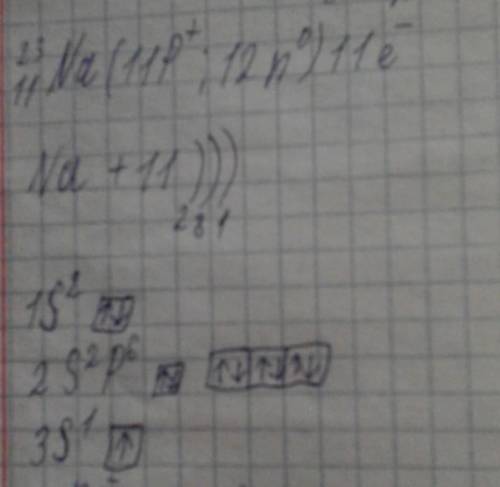 ²³₁₁Na (11p⁺; 12n⁰) 11e⁻
Na +11 ) ) )
2 8 1
1S² [↑↓]
2S²P⁶ [↑↓] [↑↓][↑↓][↑↓]
3S¹ [↑]